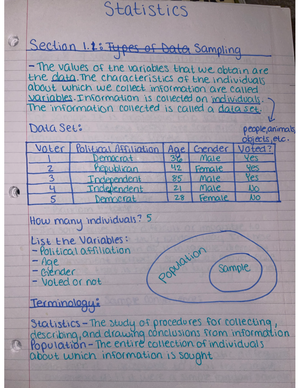 Statistics
Section 1.1: Types of Data Sampling
- The values of the variables that we obtain are
the data. The characteristics of the individuals
about which we collect information are called
variables. Information is collected on individuals.
The information collected is called a data set.
people, animals,
objects, etc.
Data Set:
Voter Political Affiliation Age Gender Voted?
1 Democrat 36 Male Yes
2 Republican 42 Female Yes
3 Independent 85 Male Yes
4 Independent 21 Male No
5 Democrat 28 Female No
How many individuals? 5
List the Variables:
- Political affiliation
- Age
- Gender
- Voted or not
Population
Sample
Terminology:
Statistics - The study of procedures for collecting,
describing, and drawing conclusions from information
Population - The entire collection of individuals
about which information is sought